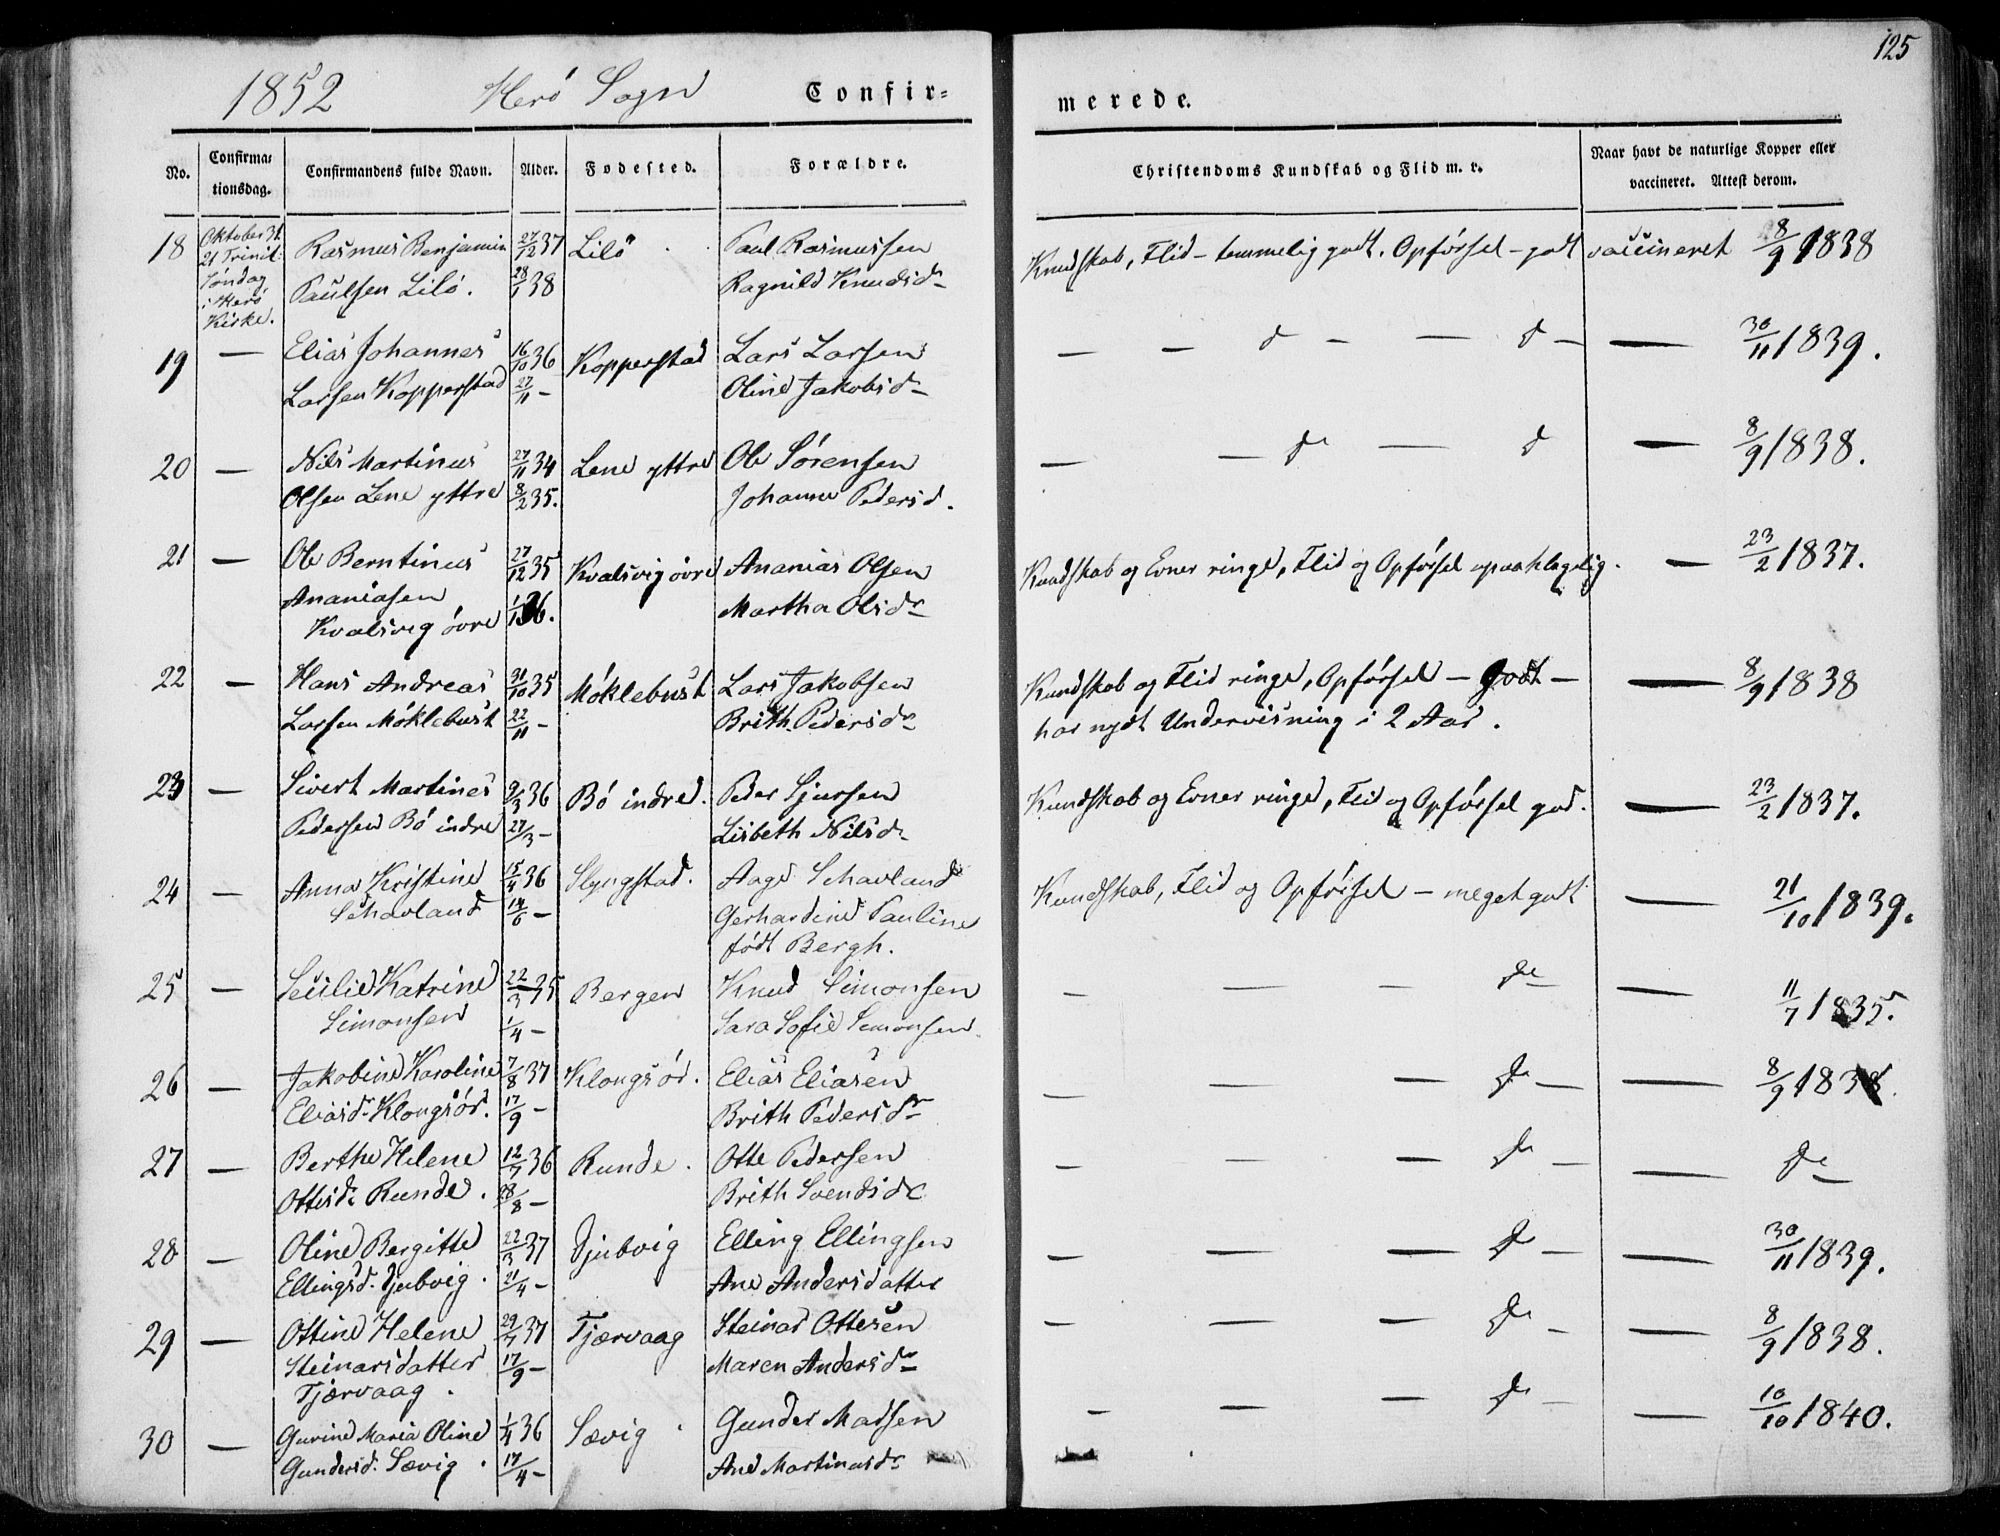 125
1852 Herö Sogn Confir=
merede.
No. Confirma= Confirmandens fulde Navn. Alder. Fødested. Forældre. Christendoms Kundskab og Flid m. v. Naar havt de naturlige Kopper eller
tionsdag. vaccineret. Attest derom.
18 Oktober 31 Rasmus Benjamin 27/12 37 Lilö Paul Rasmussen Kundskab, Flid – temmelig godt. Opförsel – godt vaccineret 8/9 1838
21 Trinit:
Söndag Paulsen Lilö. 28/1 38 Ragnild Knudsdr
i Herö
Kirke.
19 — Elias Johannes 16/10 36 Kopperstad Lars Larsen — – d – — d – — 30/11 1839.
Larsen Kopperstad 27/11 – Oline Jakobsdr
20 — Nils Martinus 27/11 34 Lene yttre Ole Sörensen — – do — d — 8/9 1838.
Olsen Lene yttre 8/2 35. Johanne Pedersd.
21 — Ole Berntinus 27/12 35 Kvalsvig övre Ananias Olsen Kundskab og Evner ringe, Flid og Opförsel upaaklagelig. — 23/2 1837.
Ananiasen 1/1 36. Martha Olsdr
Kvalsvig övre
22 — Hans Andreas 31/10 35 Möklebust Lars Jakobsen Kundskab og Flid ringe, Opförsel – godt – — 8/9 1838
Larsen Möklebust 22/11 – Brith Pedersdr har nydt Undervisning i 2 Aar.
23 — Sivert Martines 9/3 36 Bö indre. Peder Sjursen Kundskab og Evner ringe, Flid og Opförsel god. — 23/2 1837.
Pedersen Bö indre 27/3 – Lisbeth Nilsdr
24 — Anna Kristine 15/4 36 Slyngstad. Aage Schavland Kundskab, Flid og Opförsel – meget godt — 21/10 1839.
Schavland 14/6 – Gerhardine Pauline
födt Bergh.
25 — Secilie Katrine 22/3 35 Bergen Knud Simonsen – — – do — 11/7 1835.
Simonsen 1/4 – Sara Sofie Simonsen.
26 — Jakobine Karoline 7/8 37 Klongsör. Elias Eliasen — — – do – — 8/9 1838.
Eliasdr Klongsör. 17/9 – Brith Pedersdr
27 — Berthe Helene 12/7 36 Runde. Otte Pedersen – – — do – — do
Ottesdr Runde. 28/8 – Brith Svendsdr
28 — Oline Bergitte 22/3 37 Djubvig Elling Ellingsen – — — do – — 30/11 1839.
Ellingsd. Djubvig. 21/4 – Ane Andersdatter
29 — Ottine Helene 29/7 37 Tjærvaag Steinar Ottesen – — – do – — 8/9 1838.
Steinarsdatter 17/9 – Maren Andersdr
Tjærvaag.
30 — Gurine Maria Oline 1/4 36 Sævig. Gunder Madsen – — – do – — 10/10 1840.
Gundersd. Sævig. 17/4 – Ane Martinusdr